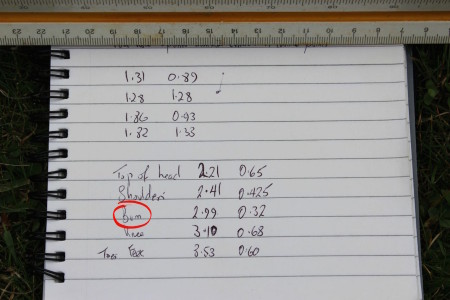 1.31 0.89
1.28 1.28
1.86 0.93
1.82 1.33
Top of head 2.21 0.65
Shoulders 2.41 0.425
Bum 2.99 0.32
knee 3.10 0.68
Toes Feet 3.53 0.60